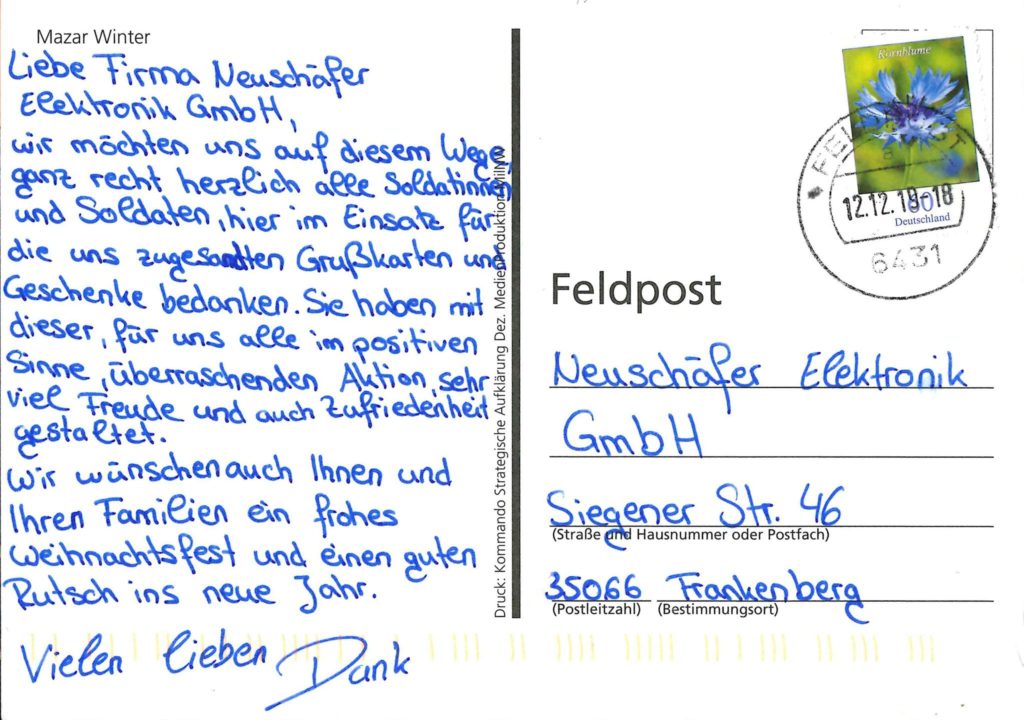 Mazar Winter
Liebe Firma Neuschäfer
Elektronik GmbH,
wir möchten uns auf diesem Wege,
ganz recht herzlich alle Soldatinnen
und Soldaten, hier im Einsatz für
die uns zugesandten Grußkarten und
Geschenke bedanken. Sie haben mit
dieser, für uns alle im positiven
Sinne, überraschenden Aktion, sehr
viel Freude und auch Zufriedenheit
gestaltet.
Wir wünschen auch Ihnen und
Ihren Familien ein frohes
Weihnachtsfest und einen guten
Rutsch ins neue Jahr.
Vielen lieben Dank
Druck: Kommando Strategische Aufklärung Dez. MedienProduktion MilNW
Kornblume
Deutschland
12.12.18-18
6431
Feldpost
Neuschäfer Elektronik
GmbH
Siegener Str. 46
(Straße und Hausnummer oder Postfach)
35066 Frankenberg
(Postleitzahl) (Bestimmungsort)